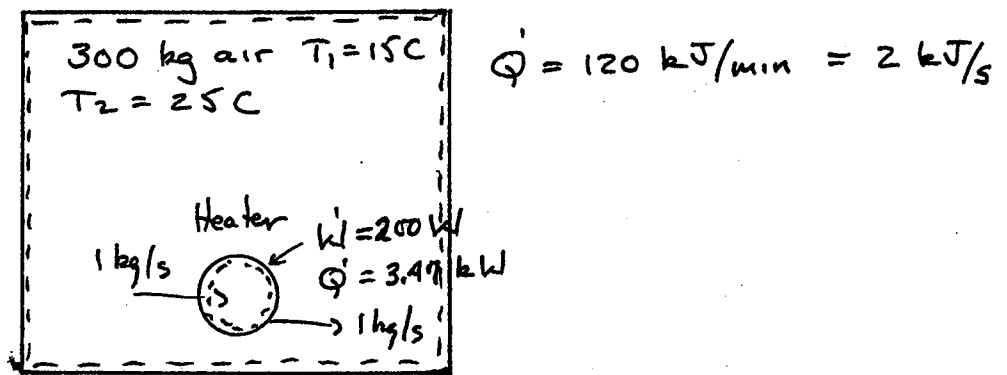 300 kg air T₁ = 15C
T₂ = 25C
Q̇ = 120 kJ/min = 2 kJ/s
Heater
Ẇ = 200 W
1 kg/s
Q̇ = kW
1 kg/s